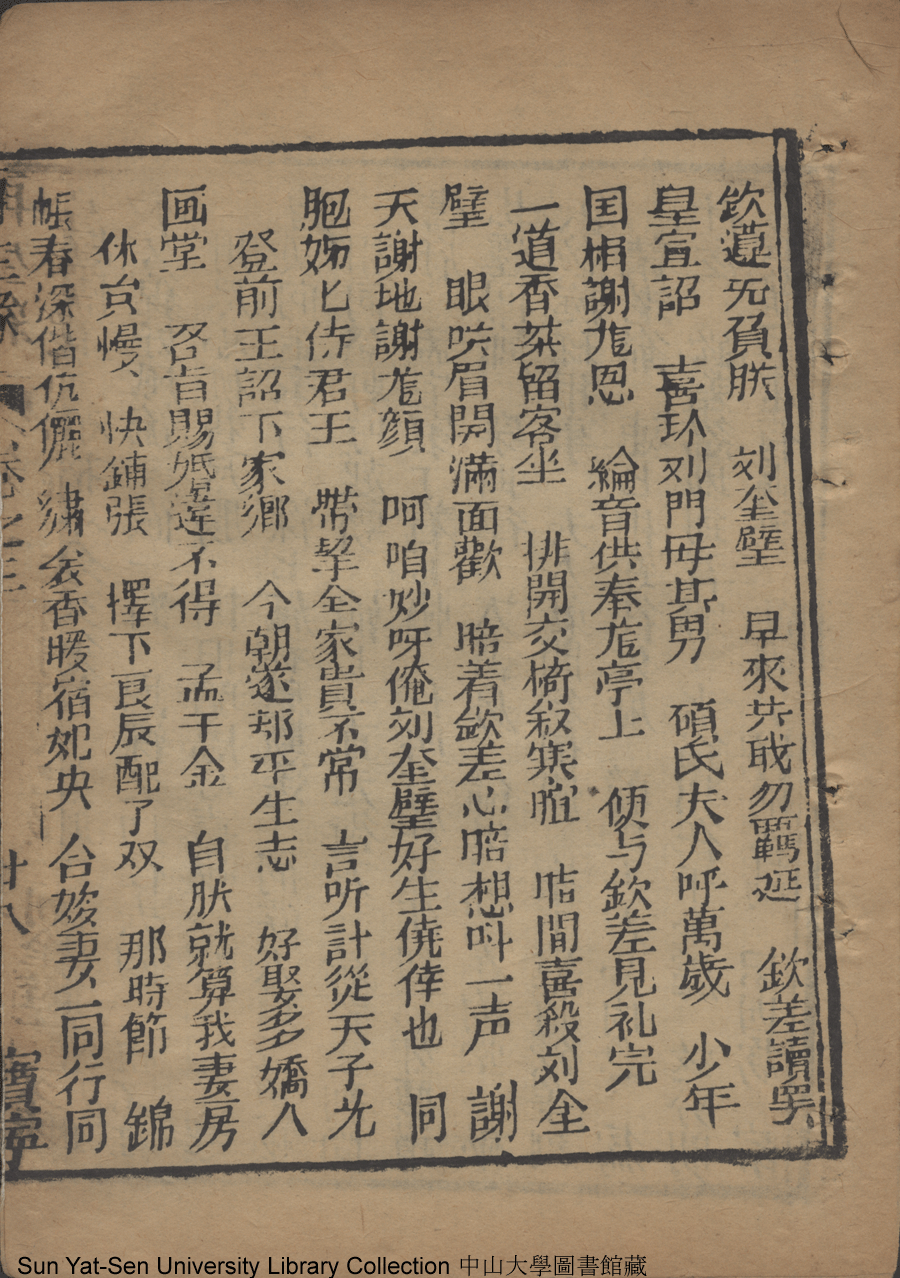 欽遵旡負朕　刘奎璧　早來共戢勿羈延　欽差讀罢
皇宣詔　喜坏刘門母共男　碩氏夫人呼萬歲　少年
国相謝龙恩　綸音供奉龙亭上　便与欽差見礼完
一道香茶留客坐　排開交椅叙寒暄　暗間喜殺刘全
璧　眼咲眉開滿面歡　暗着欽差心暗想叫一声　謝
天謝地謝龙顔　呵咱妙呀俺刘奎璧好生僥倖也　同
胞姊匕侍君王　帶挈全家貴不常　言听計從天子允
登前王詔下家鄉　今朝遂却平生志　好娶多嬌人
画堂　召旨賜婚違不得　孟千金　自朕就算我妻房
休怠慢　快鋪張　擇下良辰配了双　那時節　錦
帳春深偕伉儷　绣衾香暖宿央　台姣妻一同行同
卷之三　廿八
Sun Yat-Sen University Library Collection 中山大學圖書館藏